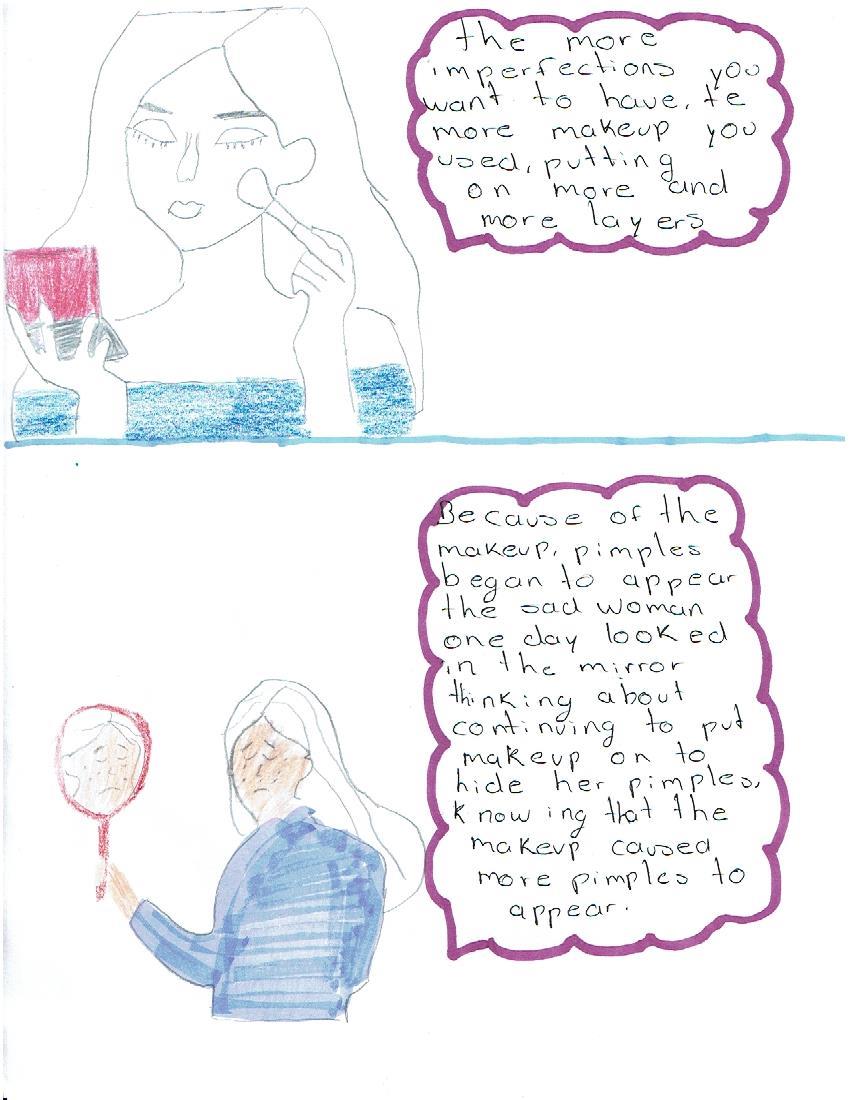 the more
imperfections you
want to have, te
more makeup you
used, putting
on more and
more layers
Because of the
makeup, pimples
began to appear
the sad woman
one day looked
in the mirror
thinking about
continuing to put
makeup on to
hide her pimples,
knowing that the
makeup caused
more pimples to
appear.